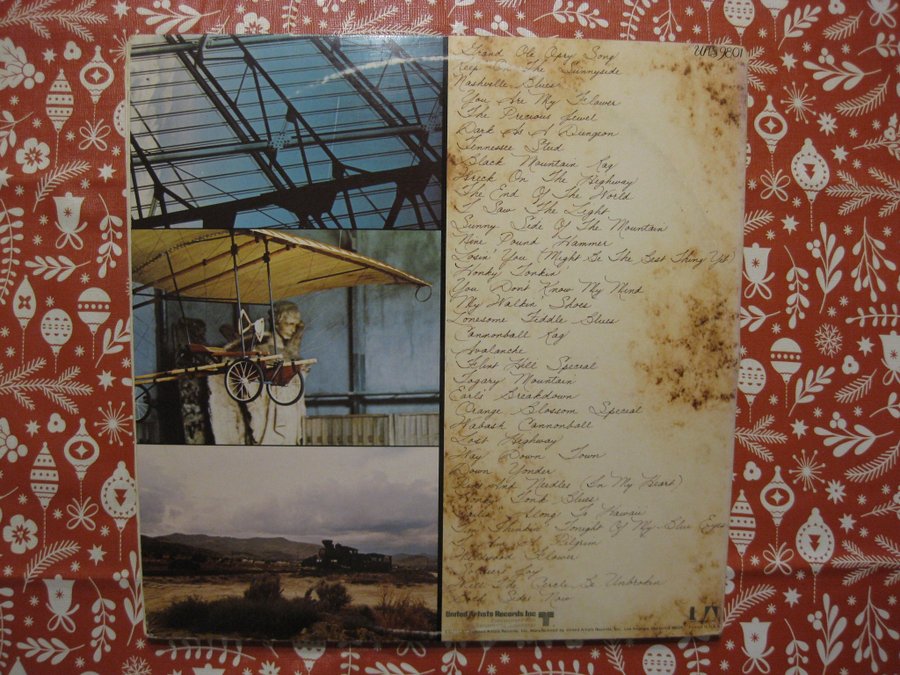 UAS 9801
Grand Ole Opry Song
Keep On The Sunnyside
Nashville Blues
You Are My Flower
The Precious Jewel
Dark As A Dungeon
Tennessee Stud
Black Mountain Rag
Wreck On The Highway
The End Of The World
I Saw The Light
Sunny Side Of The Mountain
Nine Pound Hammer
Losin You (Might Be The Best Thing Yet)
Honky Tonkin
You Dont Know My Mind
My Walkin Shoes
Lonesome Fiddle Blues
Cannonball Rag
Avalanche
Flint Hill Special
Togary Mountain
Earls Breakdown
Orange Blossom Special
Wabash Cannonball
Lost Highway
Way Down Town
Down Yonder
Pins And Needles (In My Heart)
Honky Tonk Blues
Sailin Along To Hawaii
Im Thinkin Tonight Of My Blue Eyes
Pilgrim
Wildwood Flower
Soldiers Joy
Will The Circle Be Unbroken
Both Sides Now
United Artists Records Inc
UA